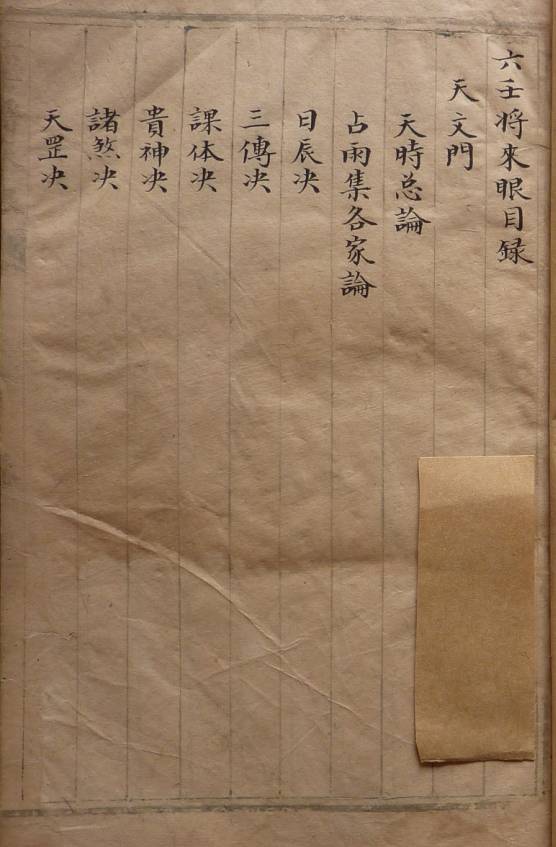 六壬将來眼目録
天文門
天時总論
占雨集各家論
日辰决
三傳决
課体决
貴神决
諸煞决
天罡决